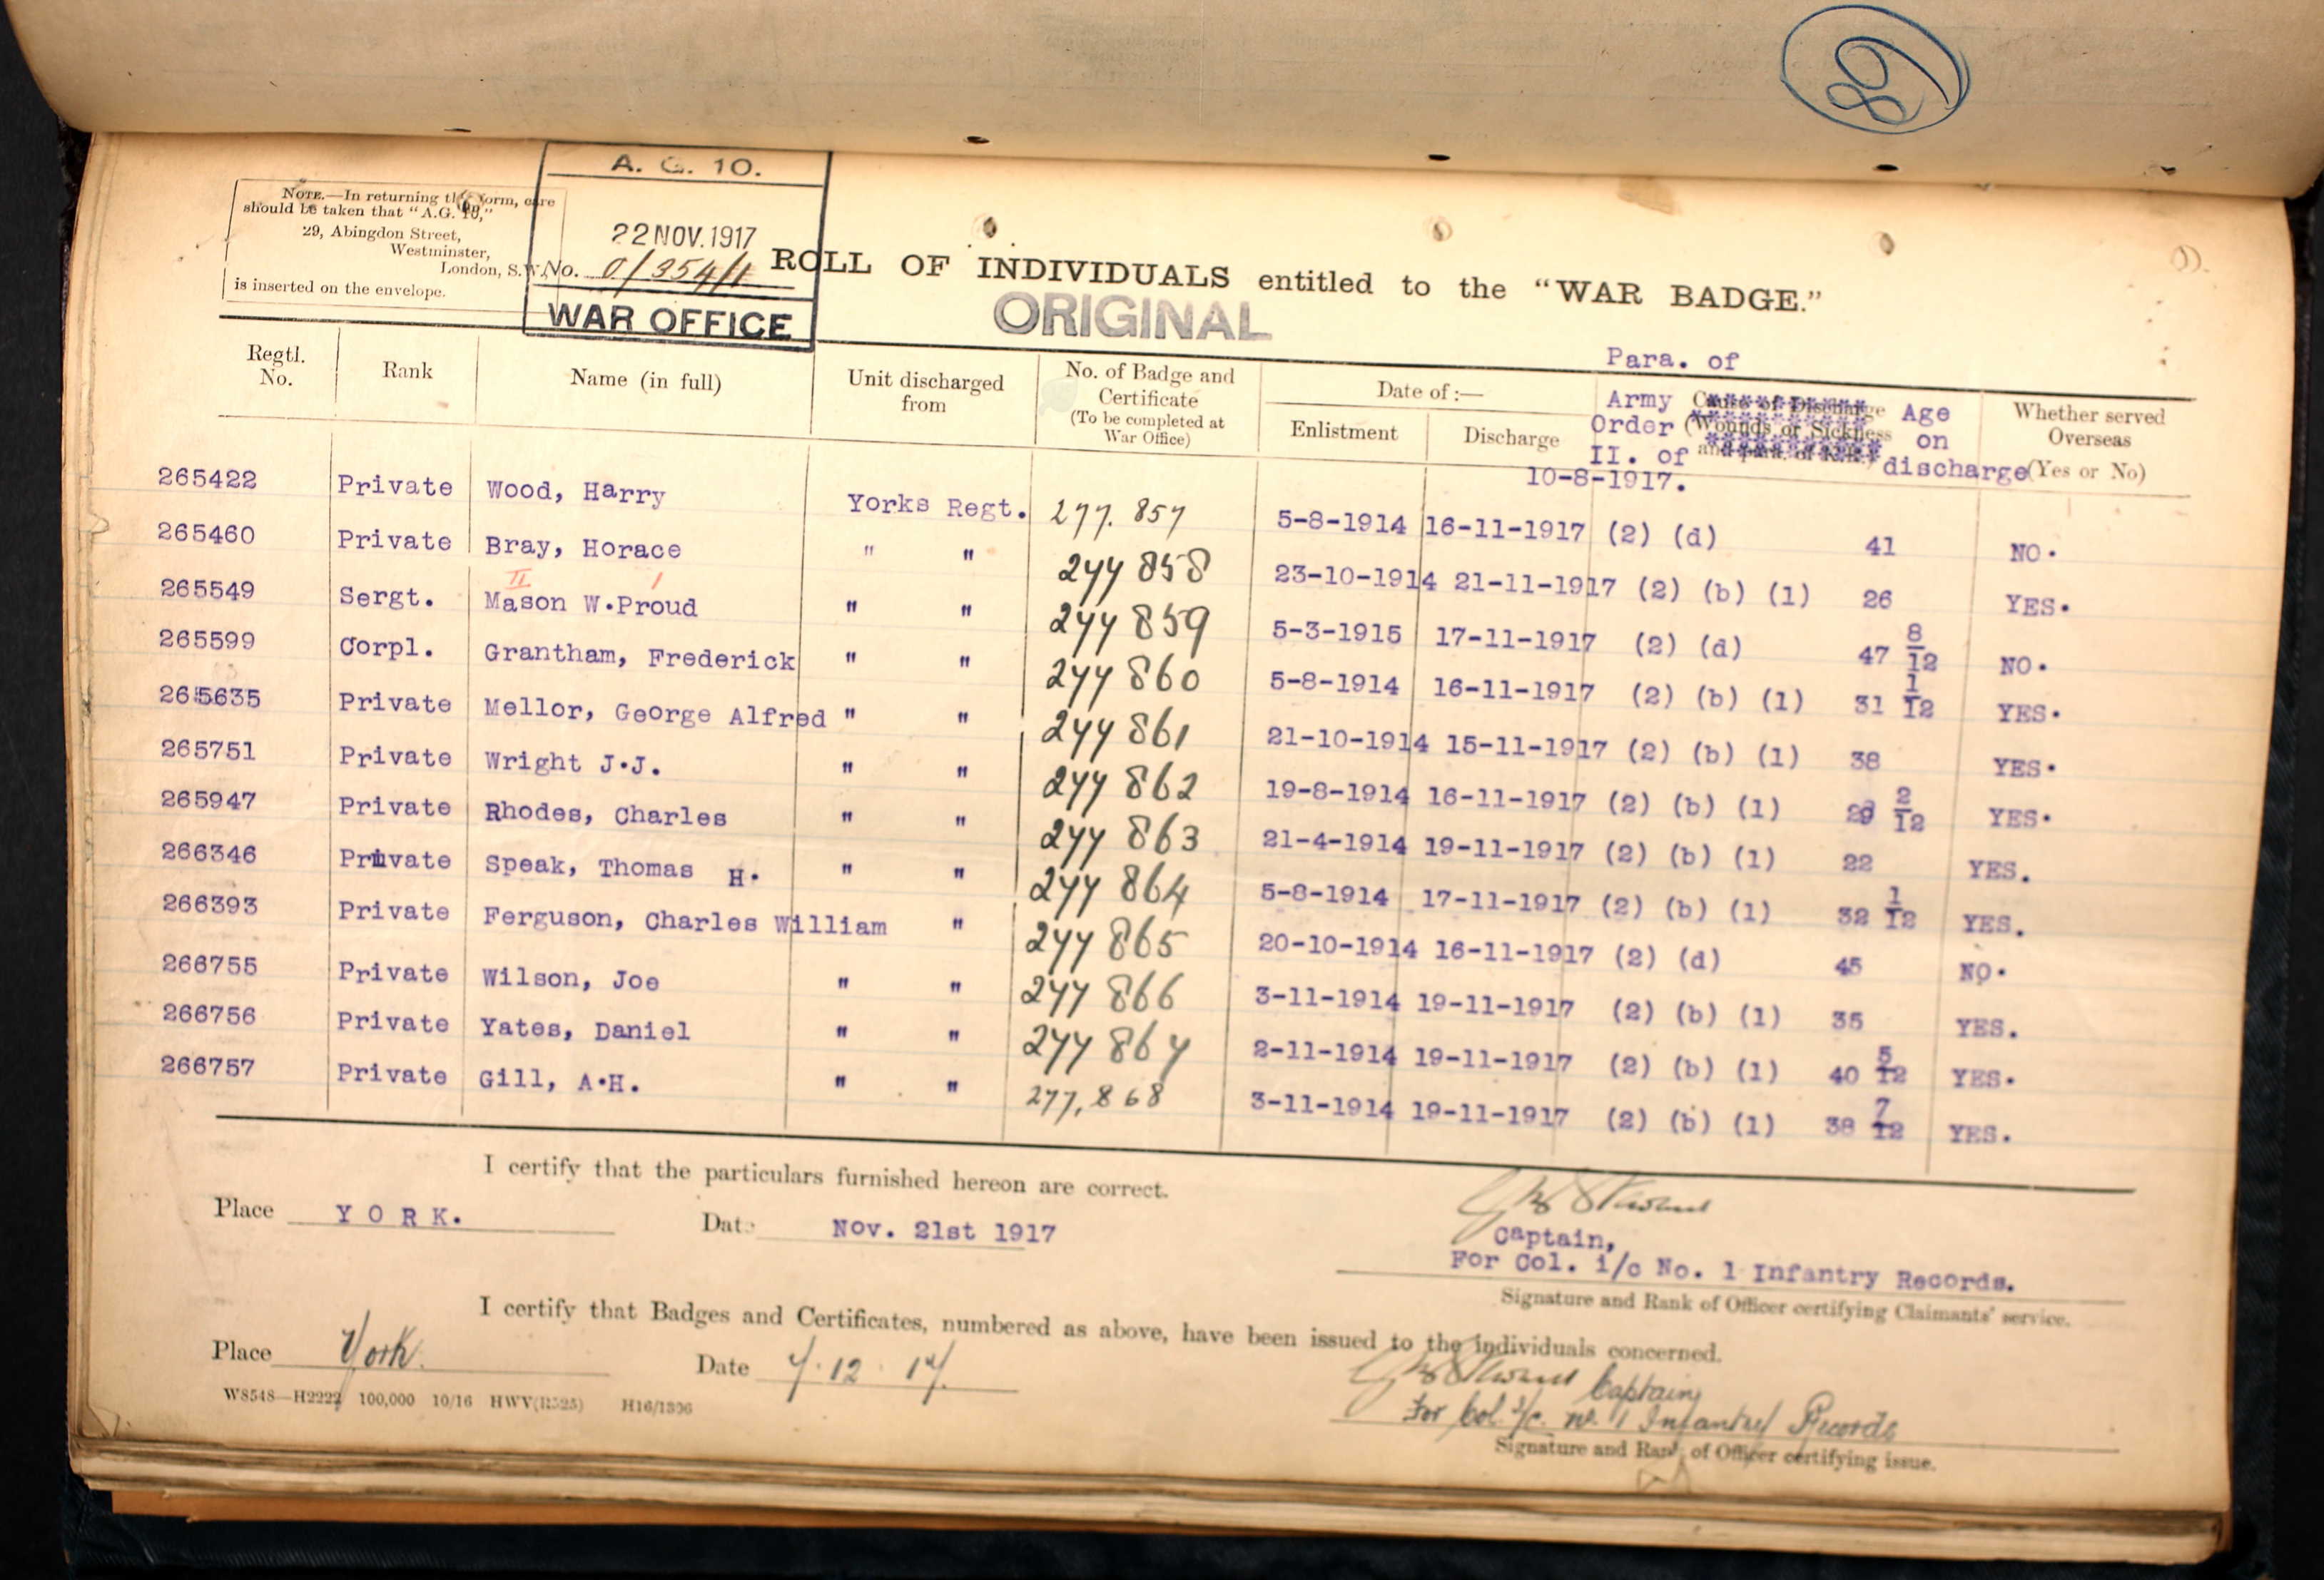 68
A. G. 10.
22 NOV. 1917
No. 0/354/1
WAR OFFICE
NOTE.—In returning this form, care
should be taken that "A.G. 10,"
29, Abingdon Street,
Westminster,
London, S.W.
is inserted on the envelope.
ROLL OF INDIVIDUALS entitled to the "WAR BADGE."
ORIGINAL
Regtl. No. Rank Name (in full) Unit discharged from No. of Badge and Certificate (To be completed at War Office) Date of :— Enlistment Discharge Para. of Army Order II. of 10-8-1917. Cause of Discharge (Wounds or Sickness Age on discharge Whether served Overseas (Yes or No)
265422 Private Wood, Harry Yorks Regt. 277.857 5-8-1914 16-11-1917 (2) (d) 41 NO.
265460 Private Bray, Horace " " 277 858 23-10-1914 21-11-1917 (2) (b) (1) 26 YES.
II I
265549 Sergt. Mason W.Proud " " 277 859 5-3-1915 17-11-1917 (2) (d) 47 8/12 NO.
265599 Corpl. Grantham, Frederick " " 277 860 5-8-1914 16-11-1917 (2) (b) (1) 31 1/12 YES.
265635 Private Mellor, George Alfred " " 277 861 21-10-1914 15-11-1917 (2) (b) (1) 38 YES.
265751 Private Wright J.J. " " 277 862 19-8-1914 16-11-1917 (2) (b) (1) 2/12 YES.
265947 Private Rhodes, Charles " " 277 863 21-4-1914 19-11-1917 (2) (b) (1) 22 YES.
266346 Private Speak, Thomas H. " " 277 864 5-8-1914 17-11-1917 (2) (b) (1) 32 1/12 YES.
266393 Private Ferguson, Charles William " 277 865 20-10-1914 16-11-1917 (2) (d) 45 NO.
266755 Private Wilson, Joe " " 277 866 3-11-1914 19-11-1917 (2) (b) (1) 35 YES.
266756 Private Yates, Daniel " " 277 867 2-11-1914 19-11-1917 (2) (b) (1) 40 5/12 YES.
266757 Private Gill, A.H. " " 277,868 3-11-1914 19-11-1917 (2) (b) (1) 38 7/12 YES.
I certify that the particulars furnished hereon are correct.
Place YORK. Date Nov. 21st 1917
Captain,
For Col. i/c No. 1 Infantry Records.
Signature and Rank of Officer certifying Claimants' service.
I certify that Badges and Certificates, numbered as above, have been issued to the individuals concerned.
Place York. Date 7.12.17.
Captain
For Col i/c. No. 1 Infantry Records
Signature and Rank of Officer certifying issue.
W8548—H2222 100,000 10/16 HWV(R525) H16/1306